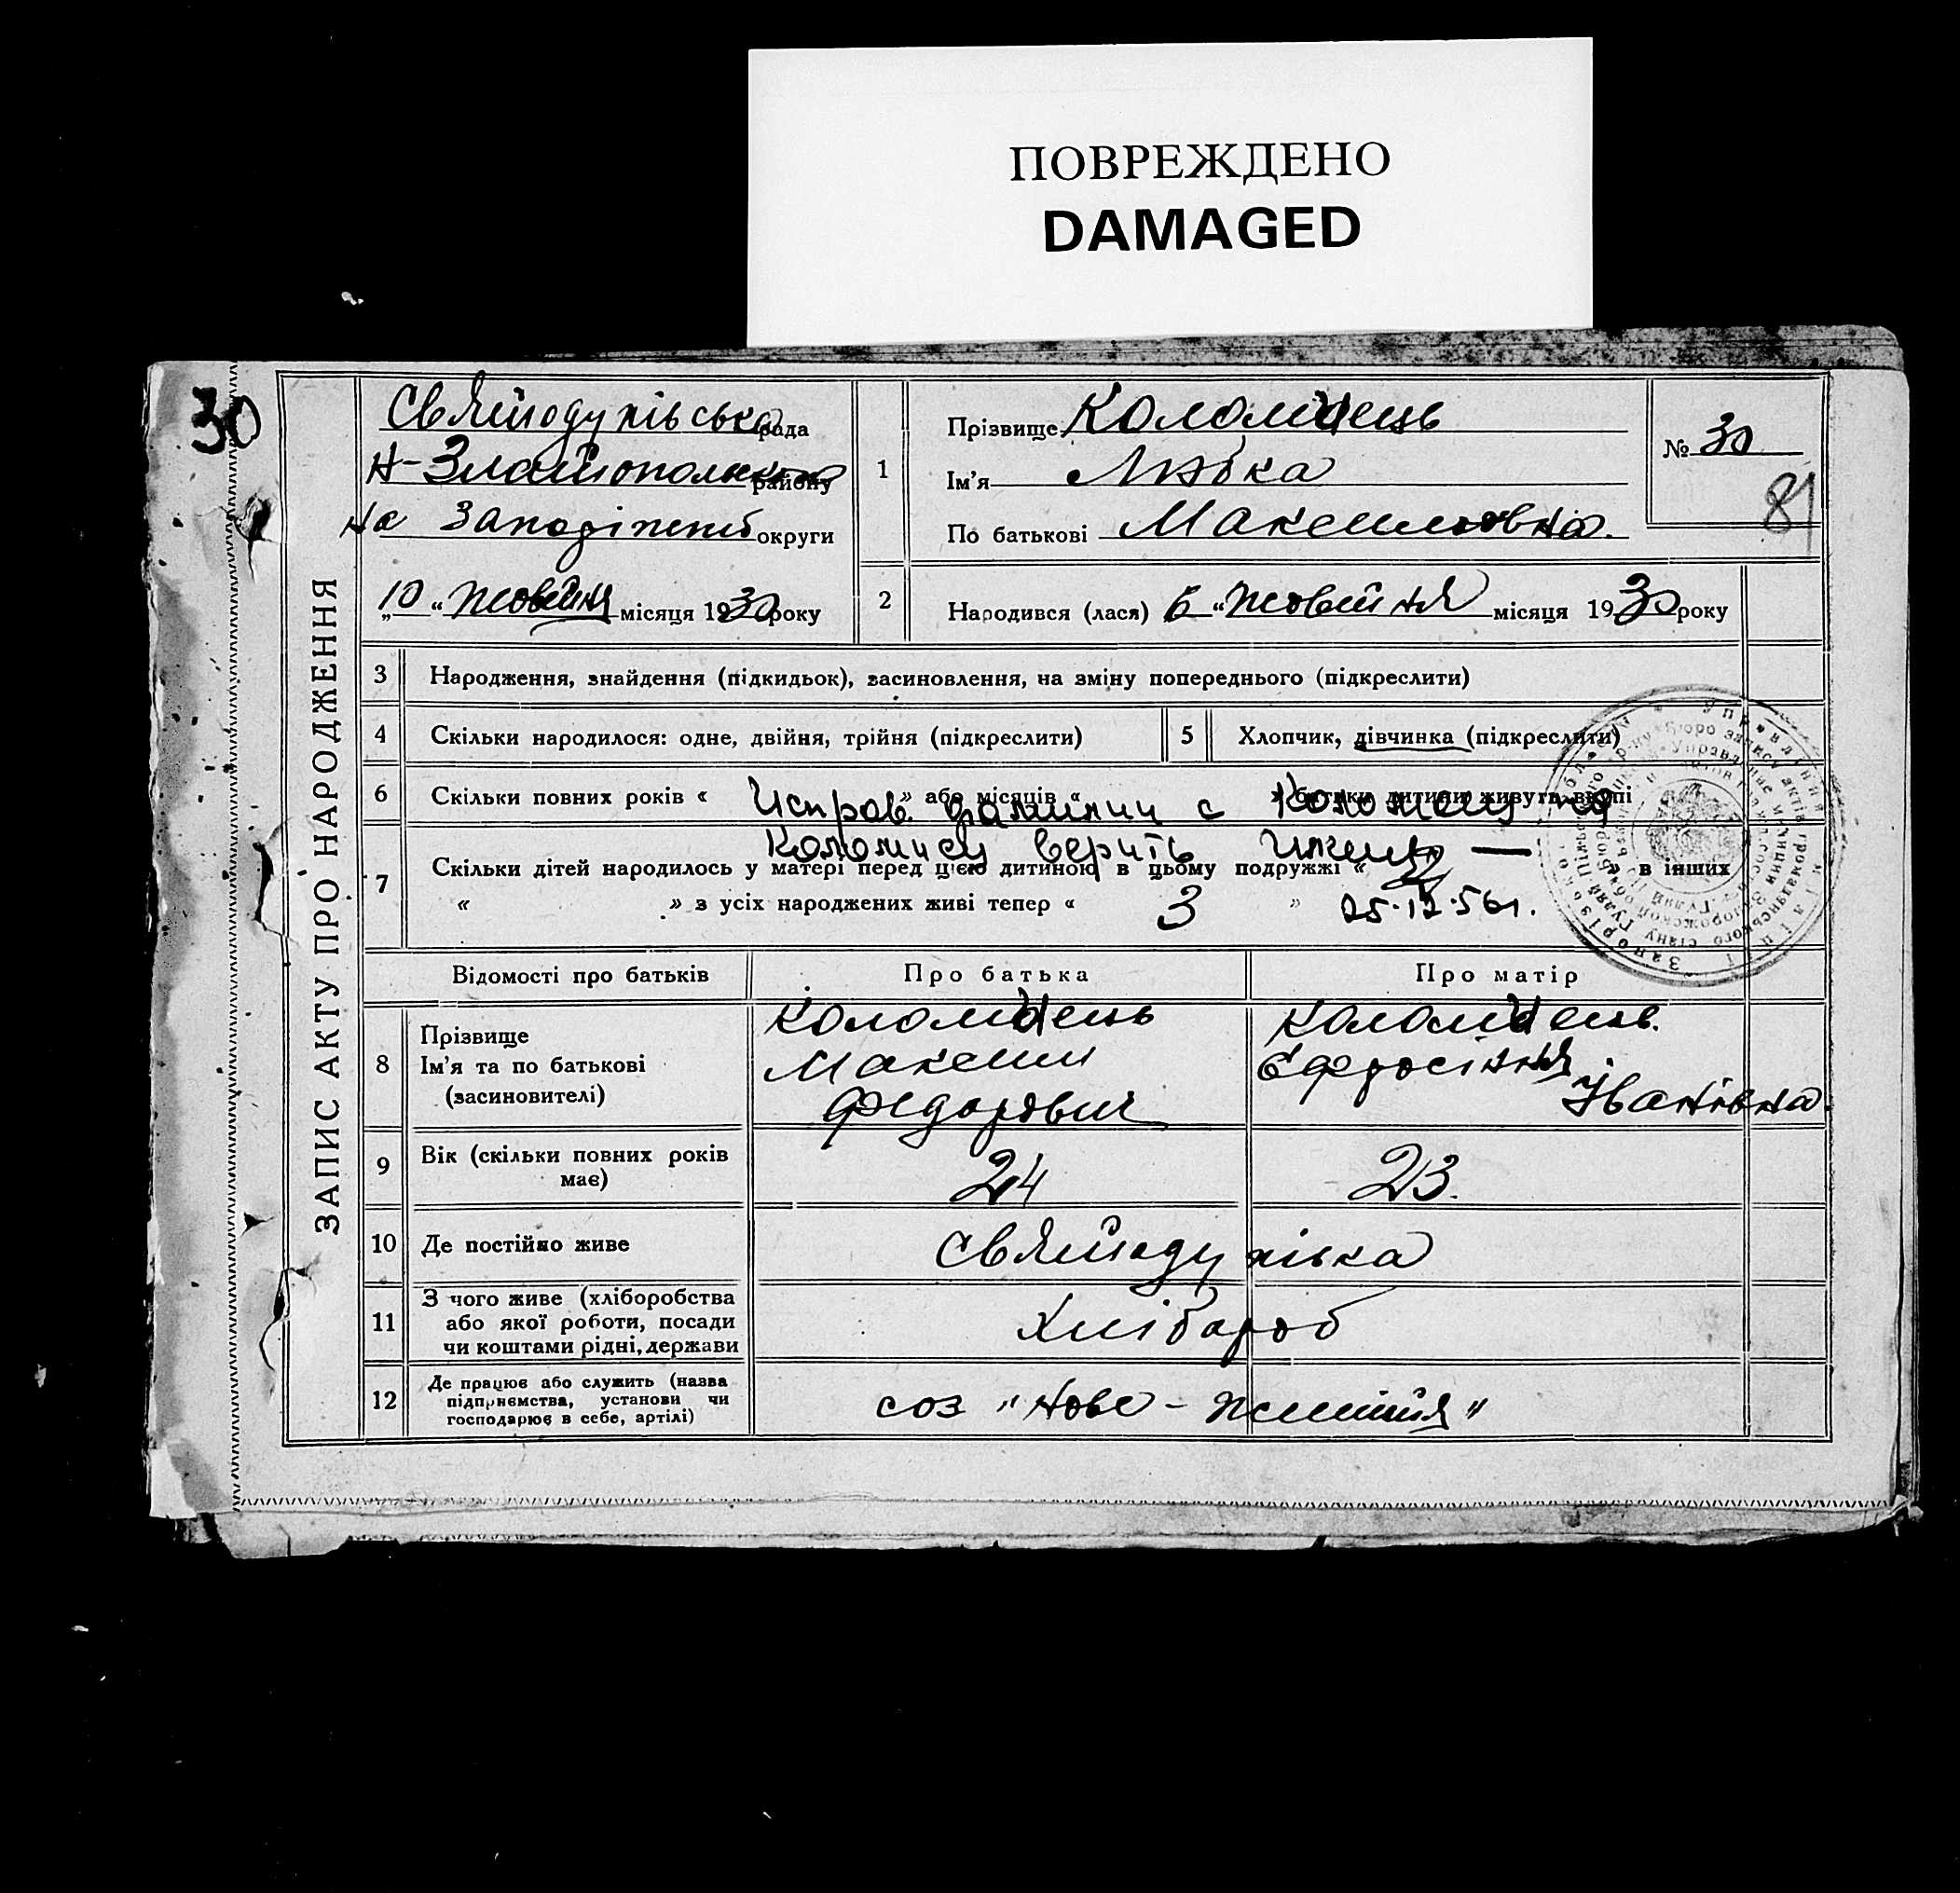 ПОВРЕЖДЕНО
DAMAGED
30
ЗАПИС АКТУ ПРО НАРОДЖЕННЯ
Святодухівська рада
Н-Златопольськ району
На Запоріжжі округи
„10 “ жовтня місяця 1930 року
1
Прізвище Коломиець
Ім'я Любка
По батькові Максимовна.
№ 30
81
2
Народився (лася) 6 “ жовтня місяця 1930 року
3 Народження, знайдення (підкидьок), засиновлення, на зміну попереднього (підкреслити)
4 Скільки народилося: одне, двійня, трійня (підкреслити)
5 Хлопчик, дівчинка (підкреслити)
6 Скільки повних років « » або місяців « » батьки дитини живуть вкупі
Исправ. фамилии с на
верить
7 Скільки дітей народилось у матері перед цією дитиною в цьому подружжі « в інших
« » з усіх народжених живі тепер « 3 » 25.12.56г.
Відомості про батьків
Про батька
Про матір
8
Прізвище
Ім'я та по батькові
(засиновителі)
Коломиець
Максим
Федорович
Коломиець.
Єфросіння
Іванівна.
9 Вік (скільки повних років
має)
24
23.
10 Де постійно живе
Святодухівка
11 З чого живе (хліборобства
або якої роботи, посади
чи коштами рідні, держави
Хлібороб
12 Де працює або служить (назва
підприємства, установи чи
господарює в себе, артілі)
соз „Нове - життя"